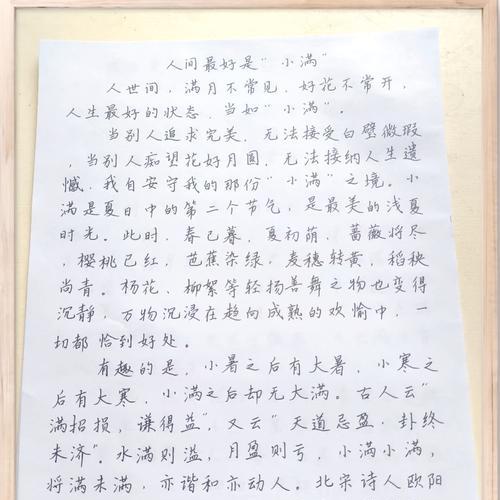 人间最好是"小满"
人世间，满月不常见，好花不常开，
人生最好的状态，当如"小满"。
当别人追求完美，无法接受白壁微瑕
，当别人痴望花好月圆，无法接纳人生遗
憾，我自安守我的那份"小满"之境。小
满是夏日中的第二个节气，是最美的浅夏
时光。此时，春已暮，夏初荫，蔷薇将尽
，樱桃已红，芭蕉染绿，麦穗转黄，稻秧
尚青。杨花、柳絮等轻扬善舞之物也变得
沉静，万物沉浸在趋向成熟的欢愉中，一
切都恰到好处。
有趣的是，小暑之后有大暑，小寒之
后有大寒，小满之后却无大满。古人云"
满招损，谦得益"，又云"天道忌盈，卦终
未济"。水满则溢，月盈则亏，小满小满，
将满未满，亦谐和亦动人。北宋诗人欧阳